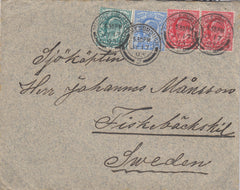 Sjökaptin
Herr Johannes Månsson
Fiskebäckskil
Sweden